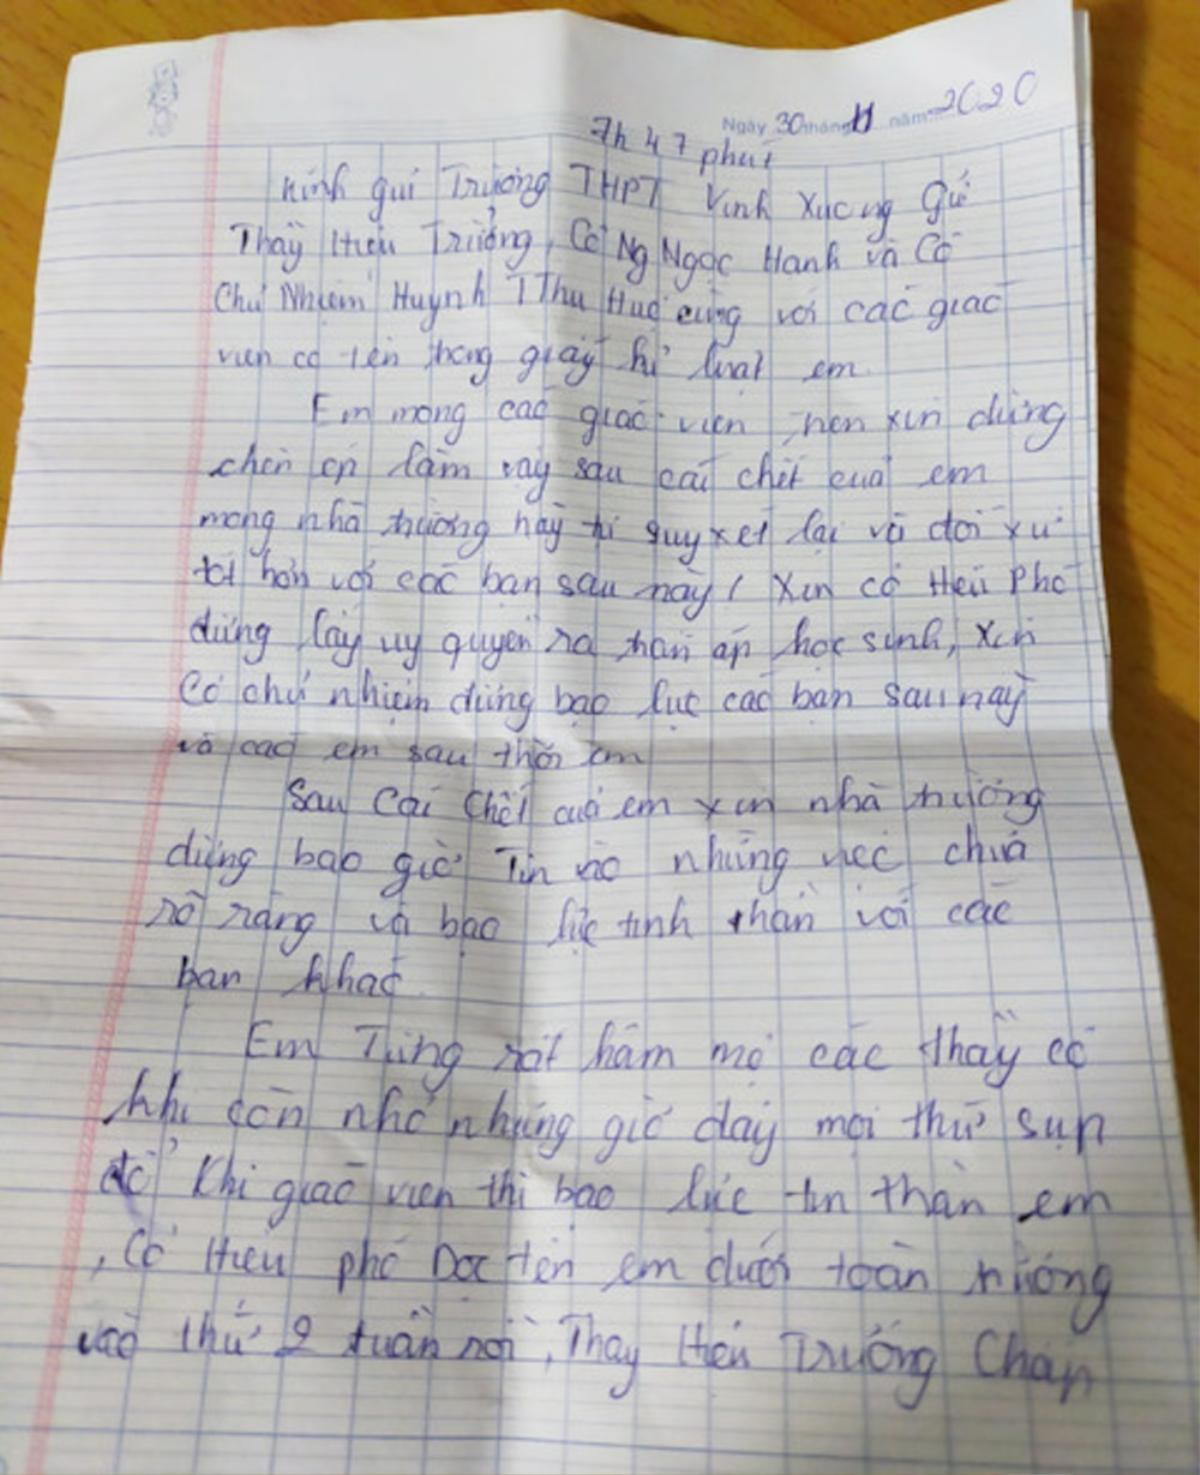 Ngày 30 tháng 11 năm 2020
7h 47 phút
Kính gửi Trường THPT Vĩnh Xương Gửi
Thầy Hiệu Trưởng, Cô Ng Ngọc Hạnh và Cô
Chủ Nhiệm Huỳnh T Thu Huệ cùng với các giáo
viên có tên trong giấy kỉ luật em.
Em mong các giáo viên, xin đừng
chèn ép lắm vậy sau cái chết của em
mong nhà trường hãy quyết lại và đối xử
tốt hơn với các bạn sau này! Xin cô Hiệu Phó
đừng lấy uy quyền ra trấn áp học sinh, xin
Cô chủ nhiệm đừng bạo lực các bạn sau này
và các em sau thời em
Sau Cái Chết của em xin nhà trường
đừng bao giờ Tin vào những việc chưa
rõ ràng và bạo lực tinh thần với các
bạn khác.
Em Từng rất hâm mộ các thầy cô
khi còn nhỏ nhưng giờ đây mọi thứ sụp
đổ Khi giáo viên thì bạo lực tin thần em
, Cô Hiệu phó Đọc tên em dưới toàn trường
vào thứ 2 tuần rồi, Thầy Hiệu Trưởng Chấp